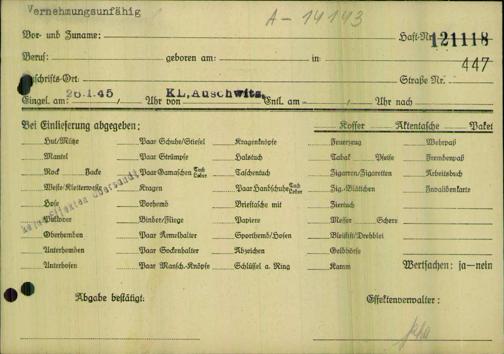 Vernehmungsunfähig
A - 14143
Vor- und Zuname: Haft-Nr. 121118
Beruf: geboren am: in 447
Anschrifts-Ort: Straße Nr.
Eingel. am 26.1.45 / Uhr von KL.Auschwitz Entl. am / Uhr nach
Bei Einlieferung abgegeben: Koffer Aktentasche Paket
Hut/Mütze Paar Schuhe/Stiefel Kragenknöpfe Feuerzeug Wehrpaß
Mantel Paar Strümpfe Halstuch Tabak Pfeife Fremdenpaß
Rock Jacke Paar Gamaschen Tuch Leder Taschentuch Zigarren/Zigaretten Arbeitsbuch
Weste/Kletterweste Kragen Paar Handschuhe Tuch Leder Zig.-Blättchen Invalidenkarte
Hose Vorhemd Brieftasche mit Ziertuch
Pullover Binder/Fliege Papiere Messer Schere
Oberhemden Paar Ärmelhalter Sporthemd/Hosen Bleistift/Drehblei
Unterhemden Paar Sockenhalter Abzeichen Geldbörse
Unterhosen Paar Mansch.-Knöpfe Schlüssel a. Ring Kamm Wertsachen: ja—nein
keine Effekten übersandt
Abgabe bestätigt: Effektenverwalter: